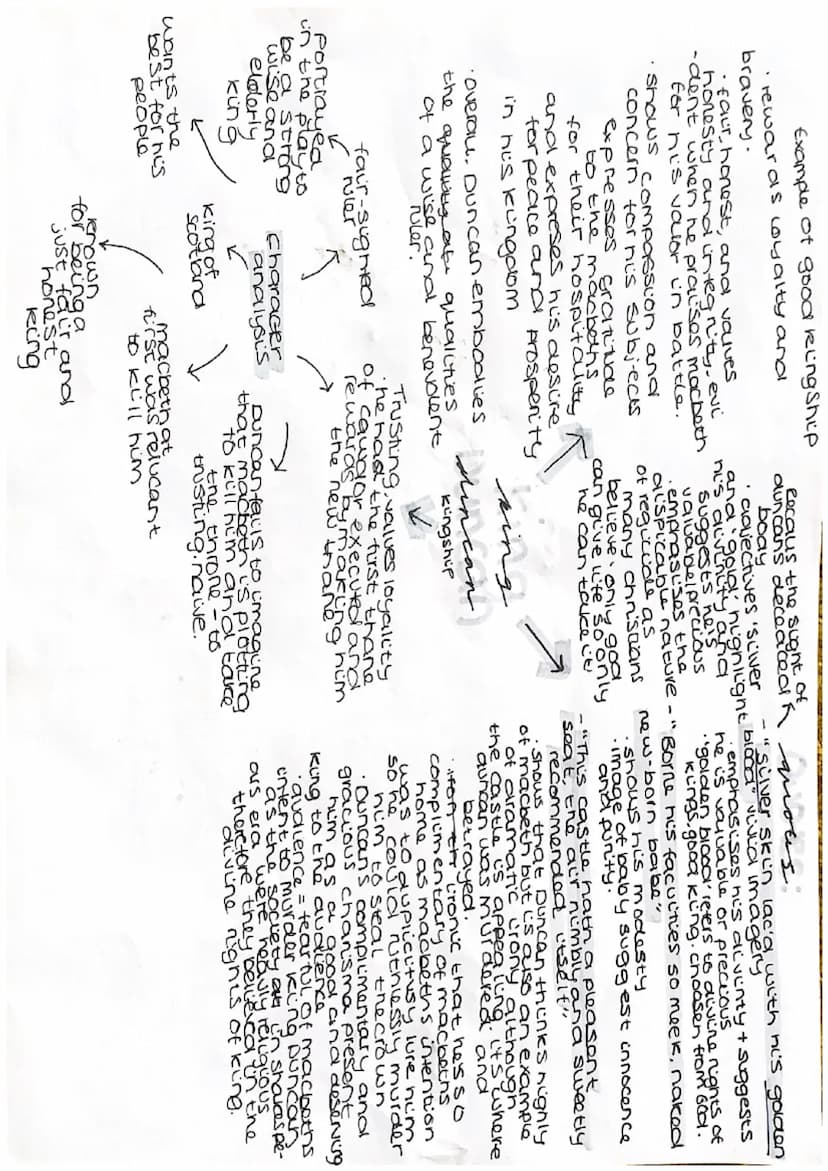 king
duncan
Example of good kingship
· rewards loyalty and
bravery.
· fair, honest, and values
honesty and integrity. evi
-dent when he praises macbeth
for his valor in battle.
· shows compassion and
concern for his subjects
expresses gratitude
to the macbeths
for their hospitality
and expreses his desire
for peace and prosperity
in his kingdom
· overall, Duncan embodies
the qualities
of a wise and benevolent
ruler.
kingship
Trusting, values loyality
· he had the first thane
of cawdor executed and
rewards by making him
the new thane
character
analysis
fair-sighted
ruler
portrayed
in the play to
be a strong
wise and
elderly
king
King of
Scotland
wants the
best for his
people
known
for being a
just fair and
honest
king
macbeth at
first was relucant
to kill him
Duncan fails to imagine
that macbeth is plotting
to kill him and take
the throne - to
trusting/naive.
quotes:
- "silver skin lac'd with his golden
blood" vivid imagery
· emphasises his divinty + suggests
he is valuable or precious
· "golden blood" refers to divine rights of
kings. good king. choosen from God.
recalls the sight of
duncan's decadced
body
· adjectives 'silver
and 'gold' highlight
his divinity and
suggests he's
valuable/precious
· emphasises the
dispicable nature
of regicide as
many christians
believe 'only god
can give life so only
he can take it'
- "Borne his faculties so meek, naked
new-born babe"
· shows his modesty
· image of baby suggest innocence
and purity.
- "This castle hath a pleasant
seat, the air nimbly and sweetly
recommended itself"
· shows that Duncan thinks highly
of macbeth but is also an example
of dramatic irony although
the castle is appealing, its where
duncan was murdered and
betrayed.
· ironic that he is so
complimentary of macbeths
home as macbeths intention
was to duplicitusy lure him
so he could ruthlessly murder
him to steal the crown
· Duncan's complimentary and
gracious charisma present
him as a good and deserving
king to the audience
· audience = fearful of macbeths
intent to murder king Duncan
as the society in shakespe-
ars era were heavily religious
therefore they believed in the
divine rights of king.